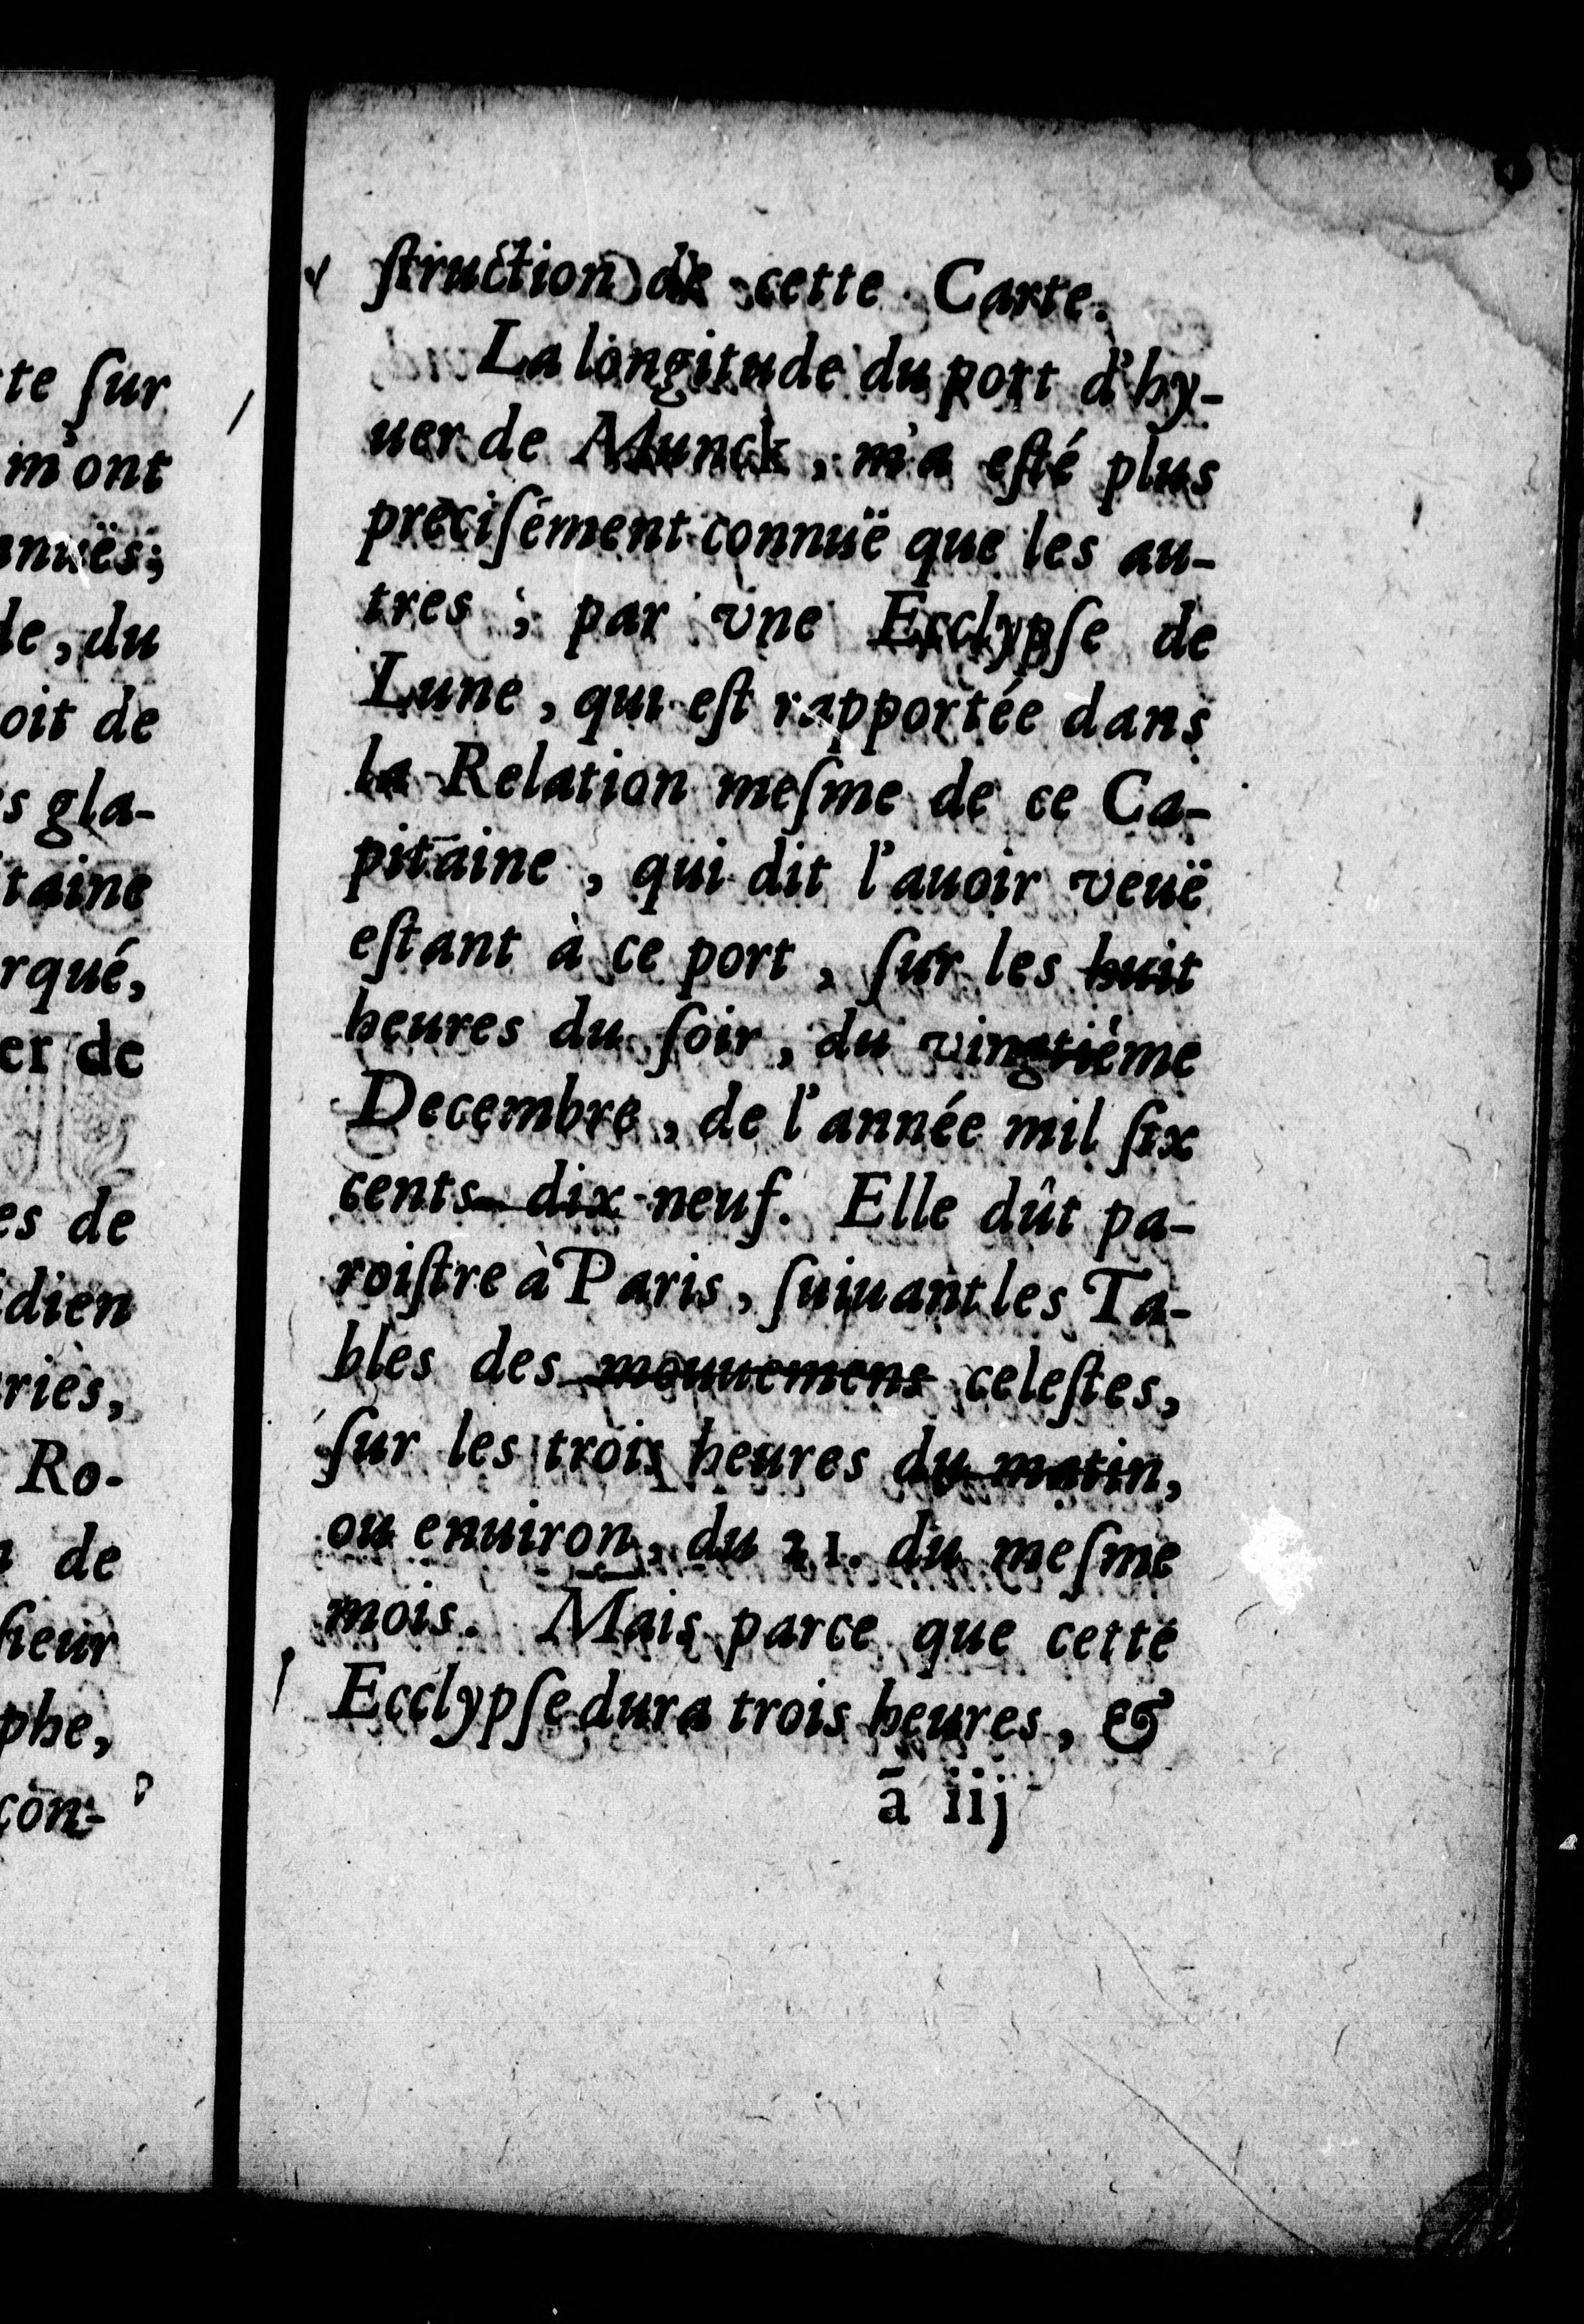 te ſur
m'ont
nnuës;
de, du
oit de
s gla-
taine
rqué,
er de
es de
dien
riés,
Ro-
de
ſieur
phe,
con-
ſtruction de cette Carte.
La longitude du port d'hy-
uer de Munck, m'a eſté plus
preciſément connuë que les au-
tres ; par vne Ecclypſe de
Lune, qui eſt rapportée dans
la Relation meſme de ce Ca-
pitaine, qui dit l'auoir veuë
eſtant à ce port, ſur les huit
heures du ſoir, du vingtiéme
Decembre, de l'année mil ſix
cents dix-neuf. Elle dût pa-
roiſtre à Paris, ſuiuant les Ta-
bles des mouuemens celeſtes,
ſur les trois heures du matin,
ou enuiron, du 21. du meſme
mois. Mais parce que cette
Ecclypſe dura trois heures, &
ã iij